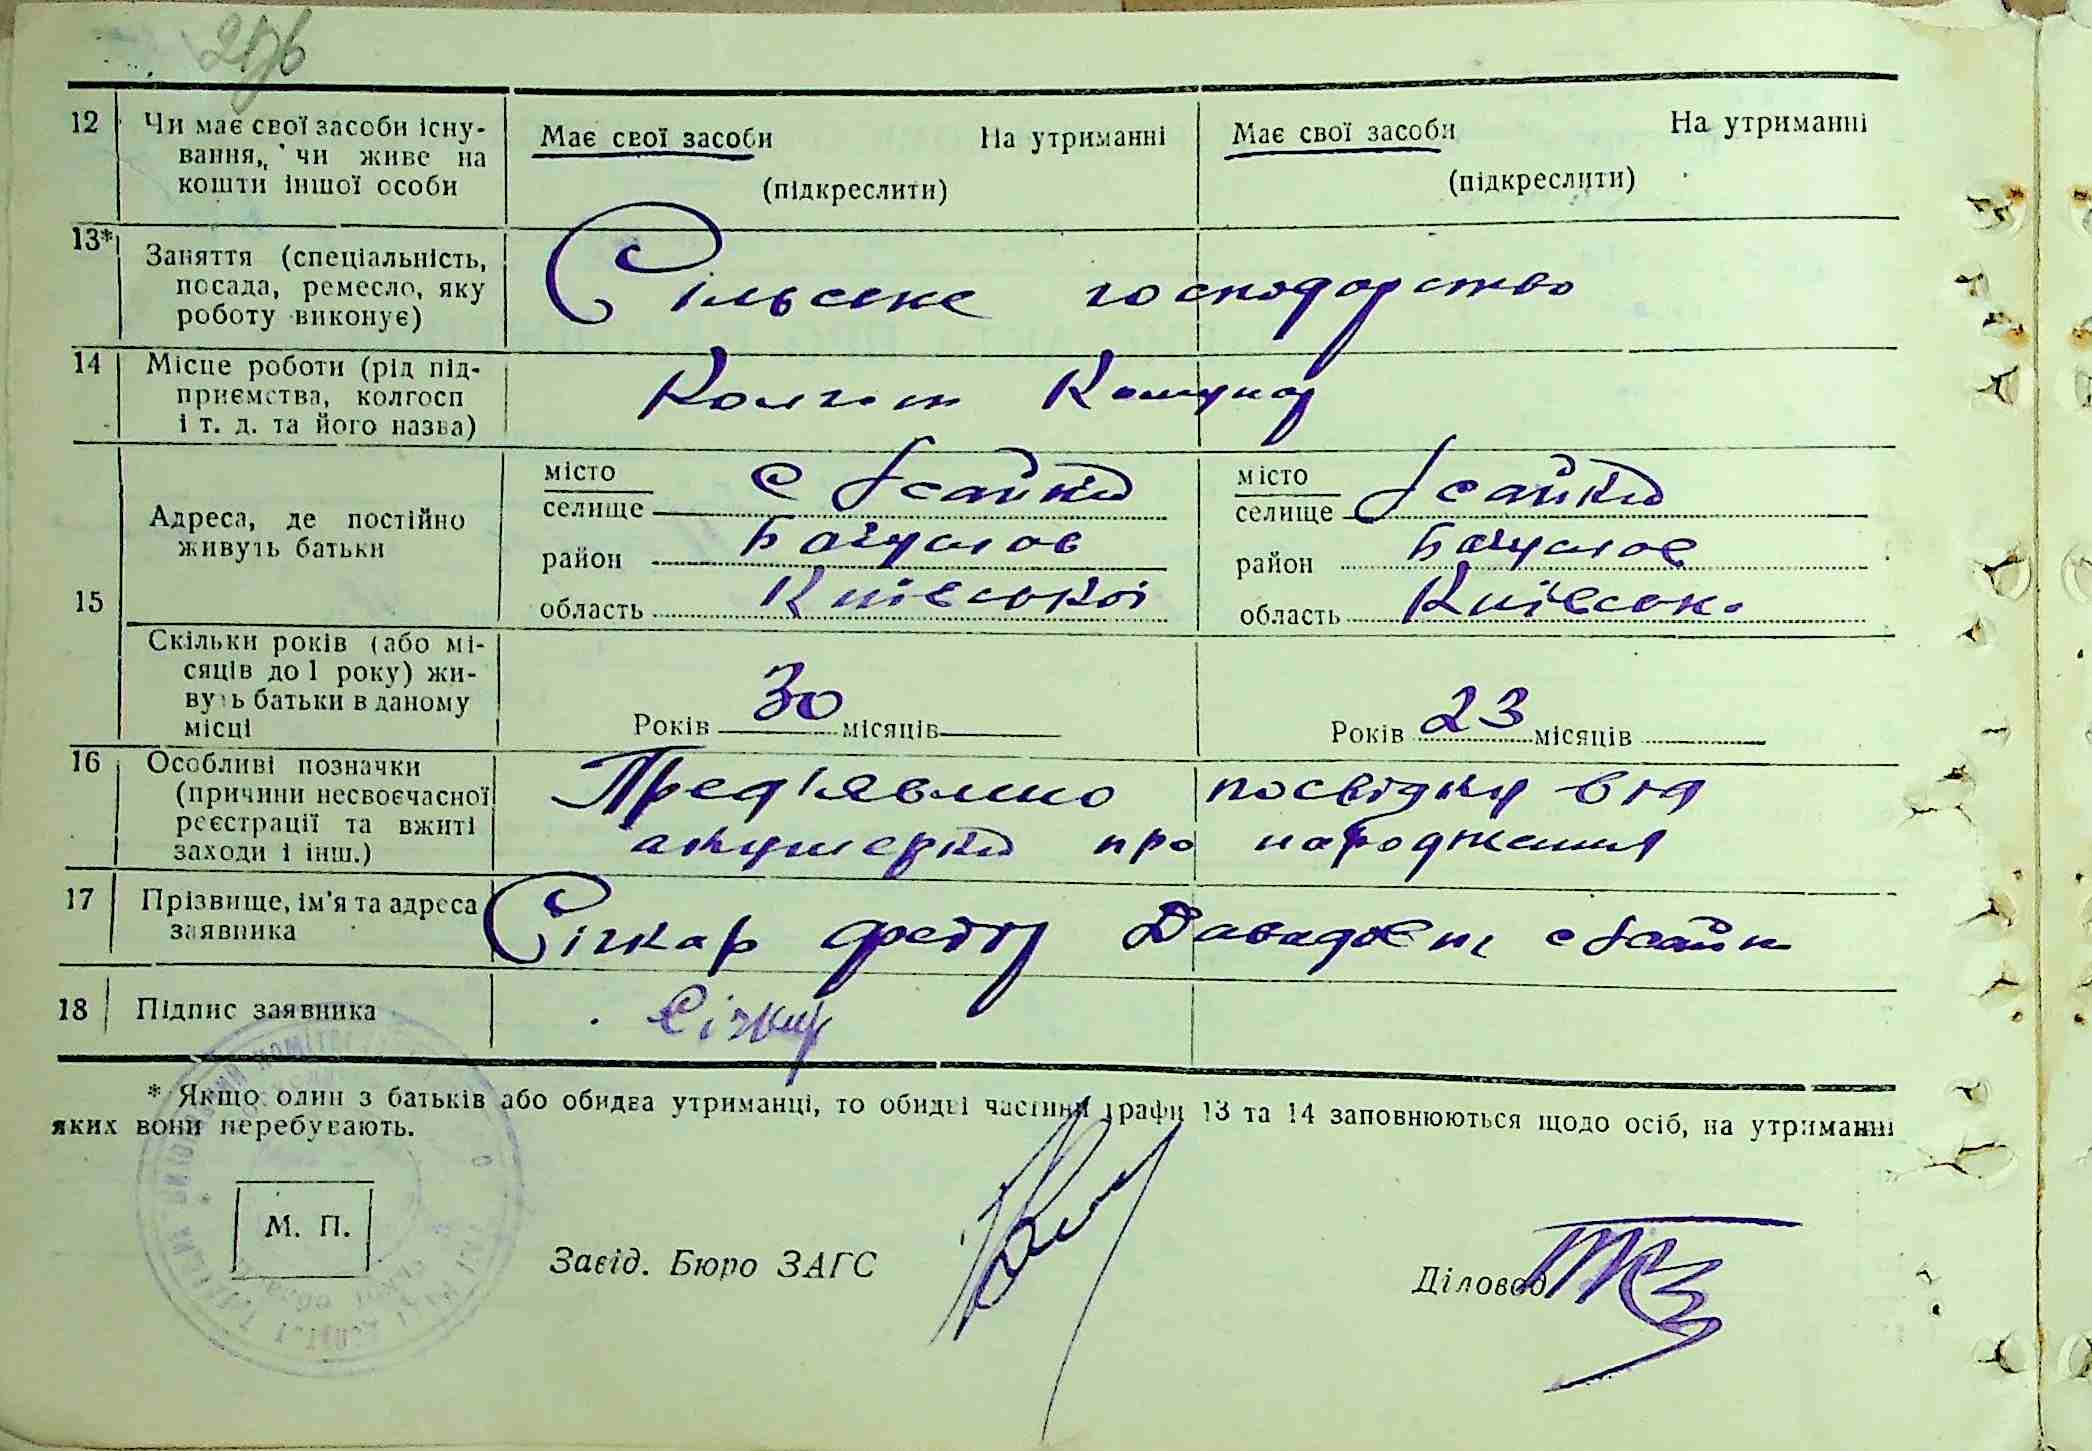 12 Чи має свої засоби існу-
вання, чи живе на
кошти іншої особи
Має свої засоби На утриманні
(підкреслити)
Має свої засоби На утриманні
(підкреслити)
13* Заняття (спеціальність,
посада, ремесло, яку
роботу виконує)
Сільське господарство
14 Місце роботи (рід під-
приємства, колгосп
і т. д. та його назва)
Колгосп Комунар
15 Адреса, де постійно
живуть батьки
місто
селище с Ісайки
район Богуслов
область Київської
місто
селище Ісайки
район Богуслов
область Київсько
Скільки років (або мі-
сяців до 1 року) жи-
вуть батьки в даному
місці
Років 30 місяців
Років 23 місяців
16 Особливі позначки
(причини несвоєчасної
реєстрації та вжиті
заходи і інш.)
Пред'явлино посвідку від
акушерки про народження
17 Прізвище, ім'я та адреса
заявника
Січкар Федір с Ісайки
18 Підпис заявника
Січкар
* Якщо один з батьків або обидва утриманці, то обидві частини графи 13 та 14 заповнюються щодо осіб, на утриманні
яких вони перебувають.
М. П.
Завід. Бюро ЗАГС
Діловод